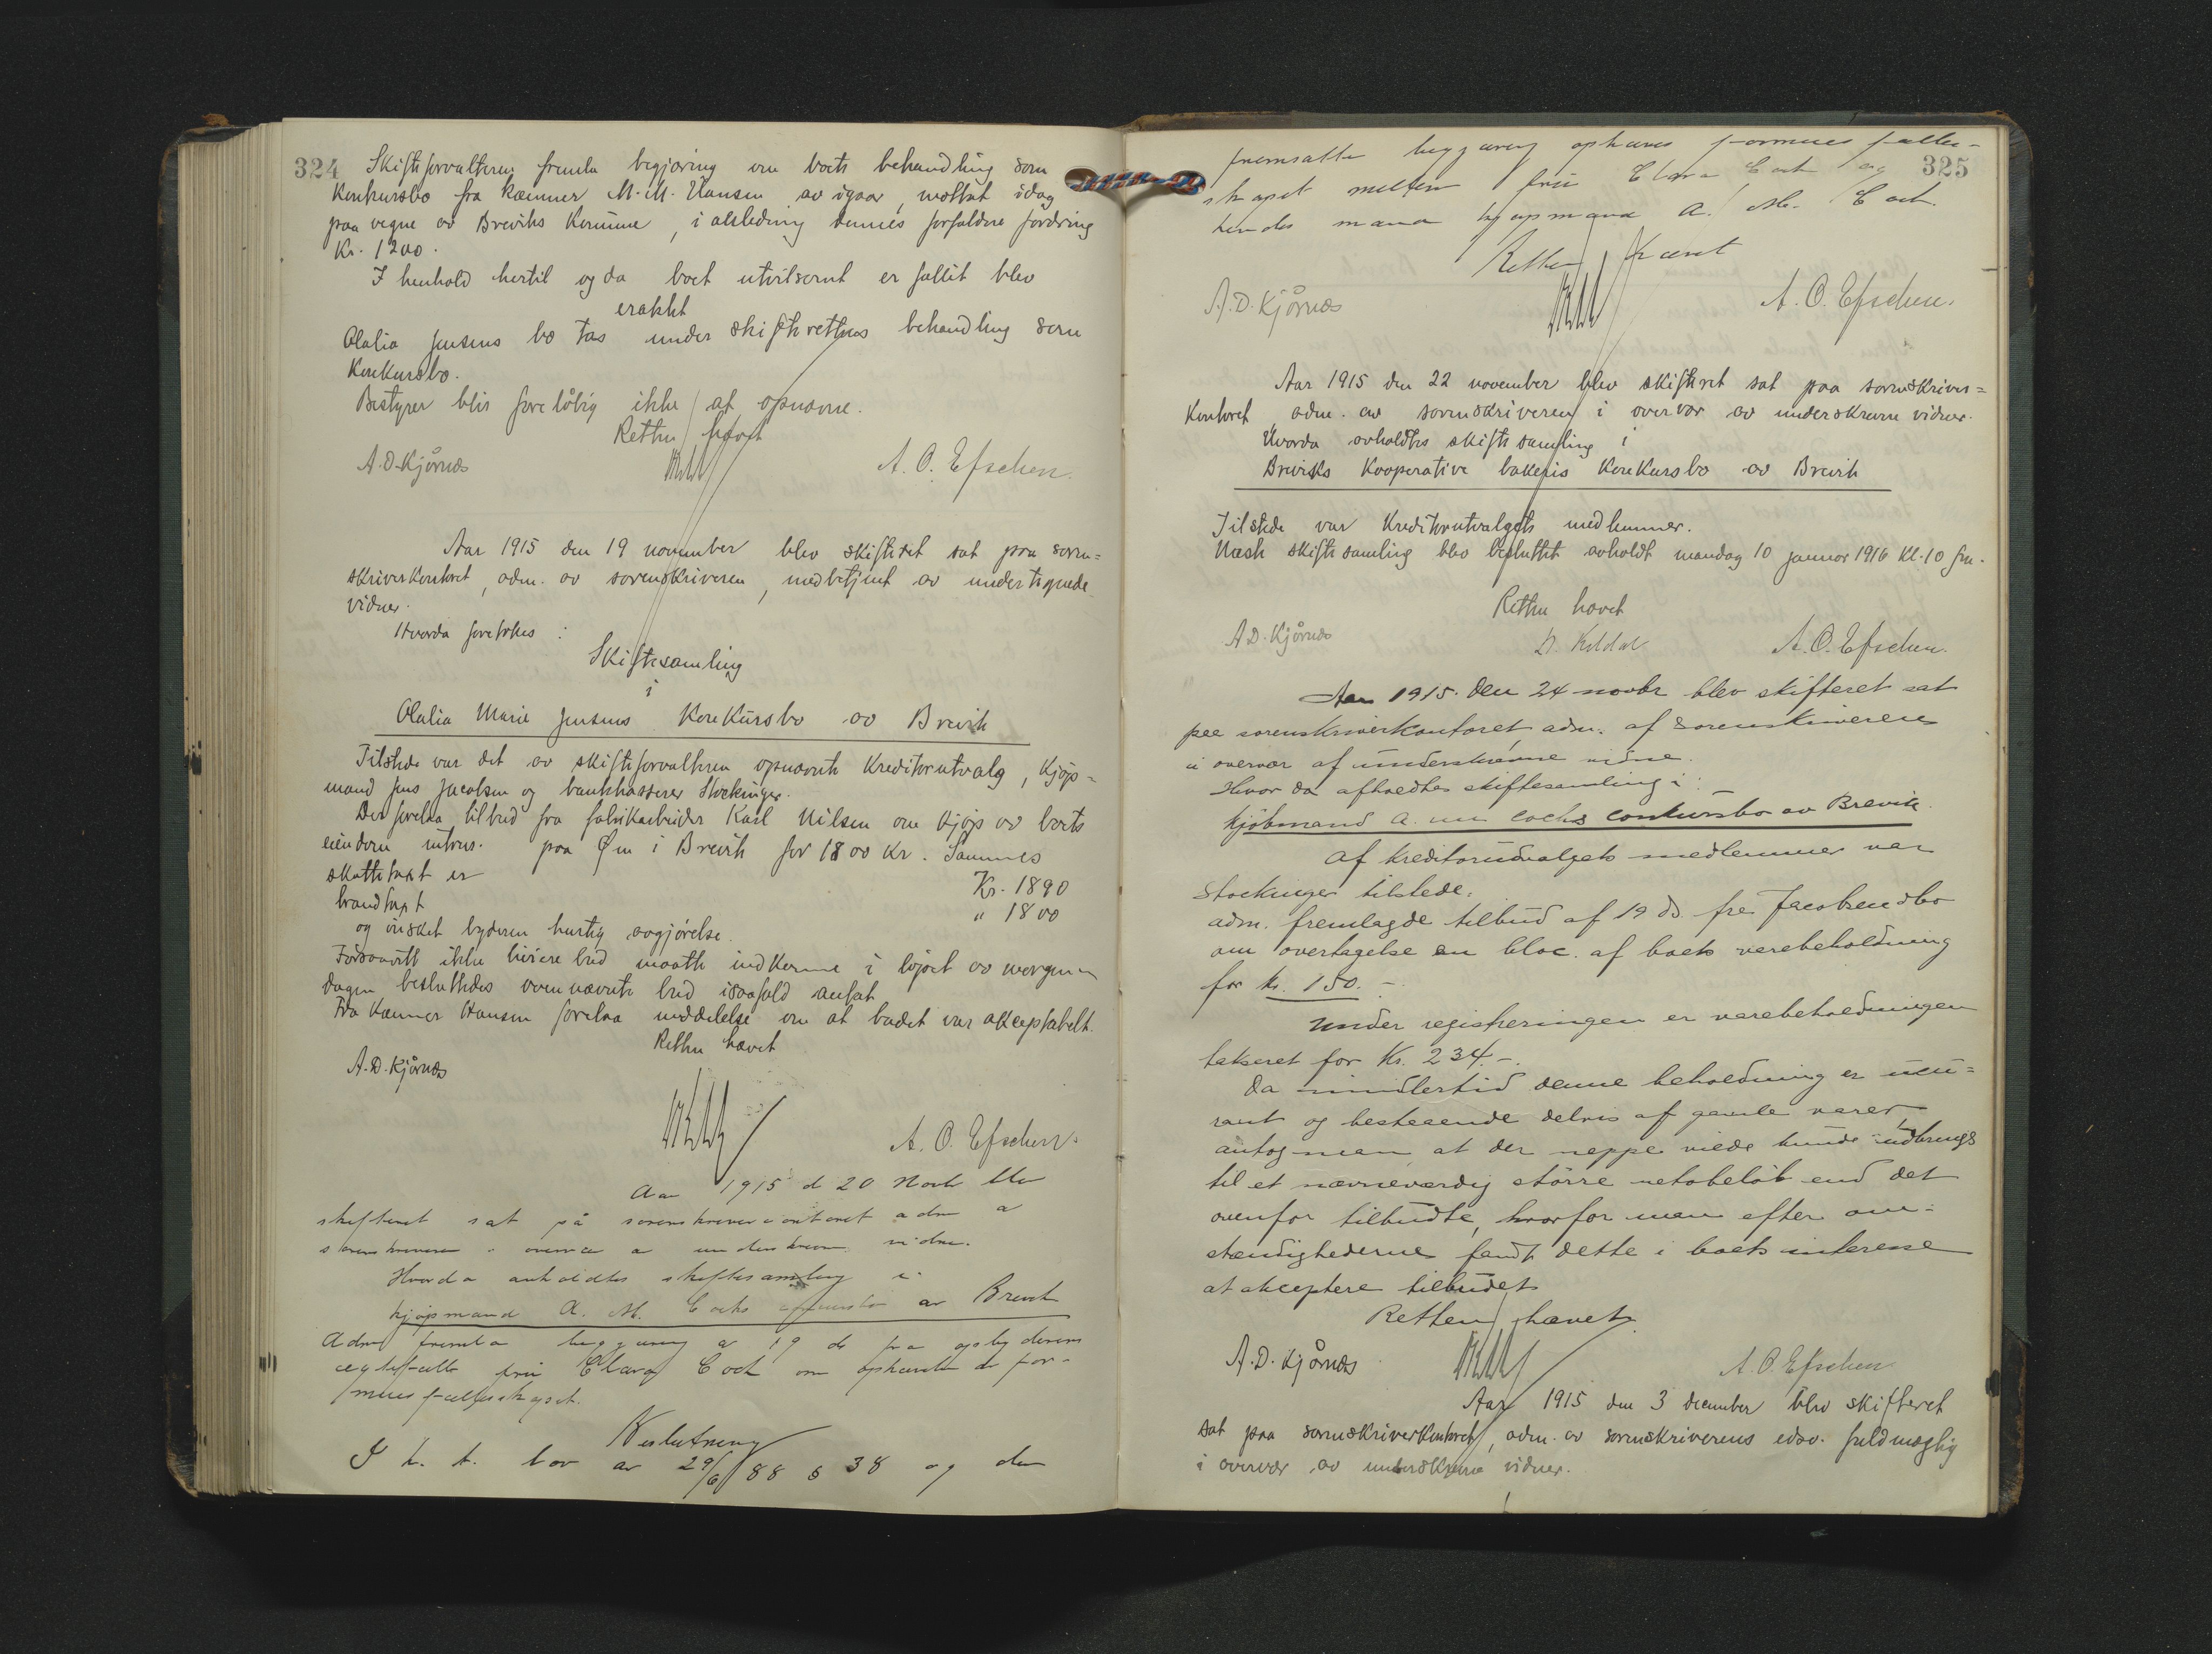 324
Skifteforvalteren fremla begjæring om boets behandling som
Konkursbo fra kæmner M. M. Hansen av igaar, mottat idag
paa vegne av Breviks Kommune, i anledning dennes forfaldne fordring
Kr. 1200.
I henhold hertil og da boet utvilsomt er fallit blev
erakktet
Olalia Jensens bo tas under skifterettens behandling som
Konkursbo.
Bestyrer blir foreløbig ikke at opnævne.
Retten hævet
A. D. Kjørnæs
A. O. Efschen.
Aar 1915 den 19 november blev skifteret sat paa soren=
skriverkontoret, adm. av sorenskriveren, medbetjent av undertegnede
vidner.
Hvorda foretokes :
Skiftesamling
i
Olalia Marie Jensens Konkursbo av Brevik
Tilstede var det av skifteforvalteren opnævnte Kreditorutvalg, Kjøp=
mand Jens Jacobsen og bankkasserer Stockinger.
Der forelaa tilbud fra fabrikarbeider Karl Nilsen om kjøp av boets
eiendom paa Øen i Brevik for 1800 Kr. Sammes
skattetaxt er Kr. 1890
brandtaxt " 1800
og ønsket byderen hurtig avgjørelse.
Forsaavitt ikke høiere bud maatte indkomme i løpet av morgen-
dagen besluttedes ovennævnte bud isaafald antat
Fra Kæmner Hansen forelaa meddelelse om at budet var akceptabelt.
Retten hævet
A. D. Kjørnæs
A. O. Efschen.
Aar 1915 d 20 Novbr blev
skifteret sat på sorenskriverkontoret adm a
sorenskriveren i overvær a underskrevne vidne.
Hvorda avholdtes skiftesamling i
kjøpmand A. M. Cochs av Brevik
Adm fremla begjæring a 19 ds fra opbyderens
egtefælle frü Clara Coch om ophævelse av for-
muesfællesskapet.
Beslutning
I h. t. lov av 29/6 88 § 38 og den
325
fremsatte begjæring ophæves formuesfælles-
skapet mellem frü Clara Coch og
hendes mand kjøpmand A. M. Coch.
Retten hævet
A. D. Kjørnæs
A. O. Efschen.
Aar 1915 den 22 november blev skifteret sat paa sorenskriver=
Kontoret adm. av sorenskriveren i overvær av underskrevne vidner.
Hvorda avholdtes skiftesamling i
Breviks Kooperative bakeris Konkursbo av Brevik
Tilstede var Kreditorutvalgets medlemmer.
Næste skiftesamling blev besluttet avholdt mandag 10 januar 1916 Kl. 10 fm.
Retten hævet
A. D. Kjørnæs
A. O. Efschen.
Aar 1915. den 24 novbr blev skifteret sat
paa sorenskriverkontoret adm. af sorenskriveren
i overvær af underskrevne vidne.
Hvor da afholdtes skiftesamling i:
Kjøbmand A. Cochs concursbo av Brevik.
Af Kreditorudvalgets medlemmer var
Stockinger tilstede.
adm. fremlagde tilbud af 19 ds. fra Jacobsen
om overtagelse en bloc. af boets varebeholdning
for kr. 150.-
Under registreringen er varebeholdningen
takseret for Kr. 234.-
Da imidlertid denne beholdning er uku=
rant og bestaaende delvis af gamle varer,
antog man at der neppe vilde kunde indbringes
til et nævneværdig større netobeløb end det
ovenfor tilbudte, hvorfor man efter om=
stændighederne fandt dette i boets interesse
at akceptere tilbudet.
Retten hævet
A. D. Kjørnæs
A. O. Efschen
Aar 1915 den 3 december blev skifteret
sat paa sorenskriverkontoret, adm. av sorenskriverens edsv. fuldmægtig
i overvær av underskrevne vidner.